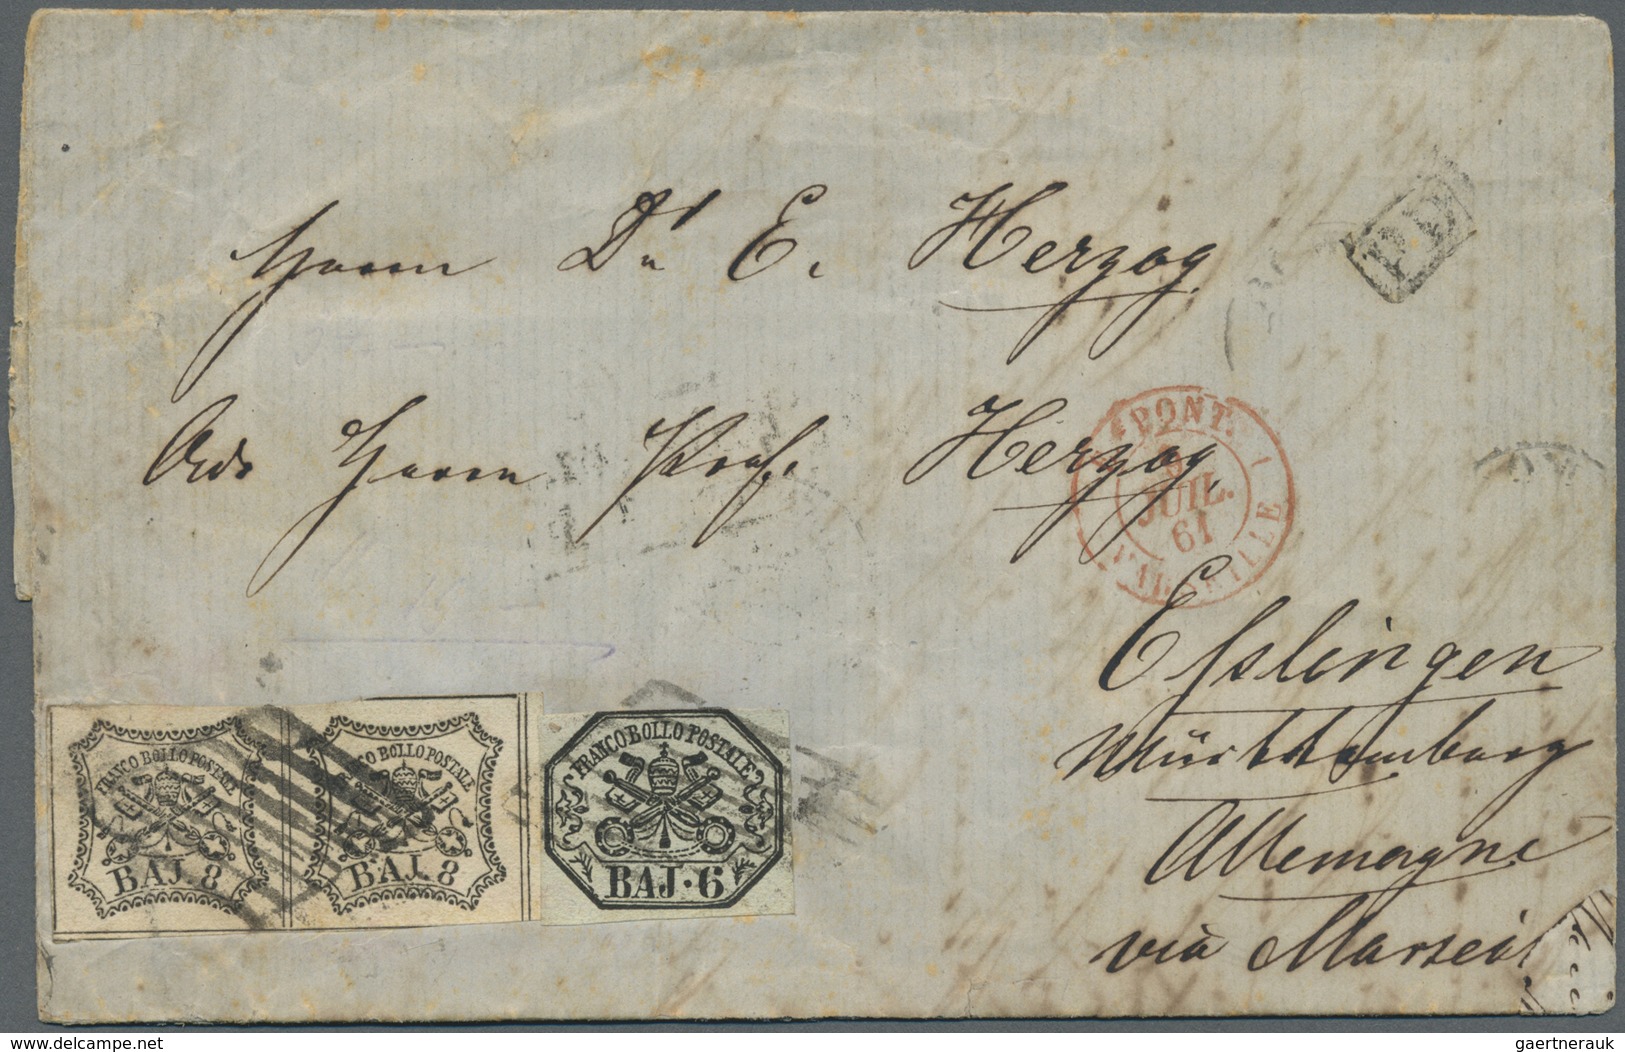 Herrn Dr E. Herzog
PD
Ads Herrn Prof. Herzog,
E. PONT. 1
JUIL.
61
MARSEILLE
Esslingen
Württemburg
Allemagne
via Marseil
FRANCO BOLLO POSTALE
BAJ. 8
FRANCO BOLLO POSTALE
BAJ. 8
FRANCO BOLLO POSTALE
BAJ·6
www.delcampe.net
gaertnerauk